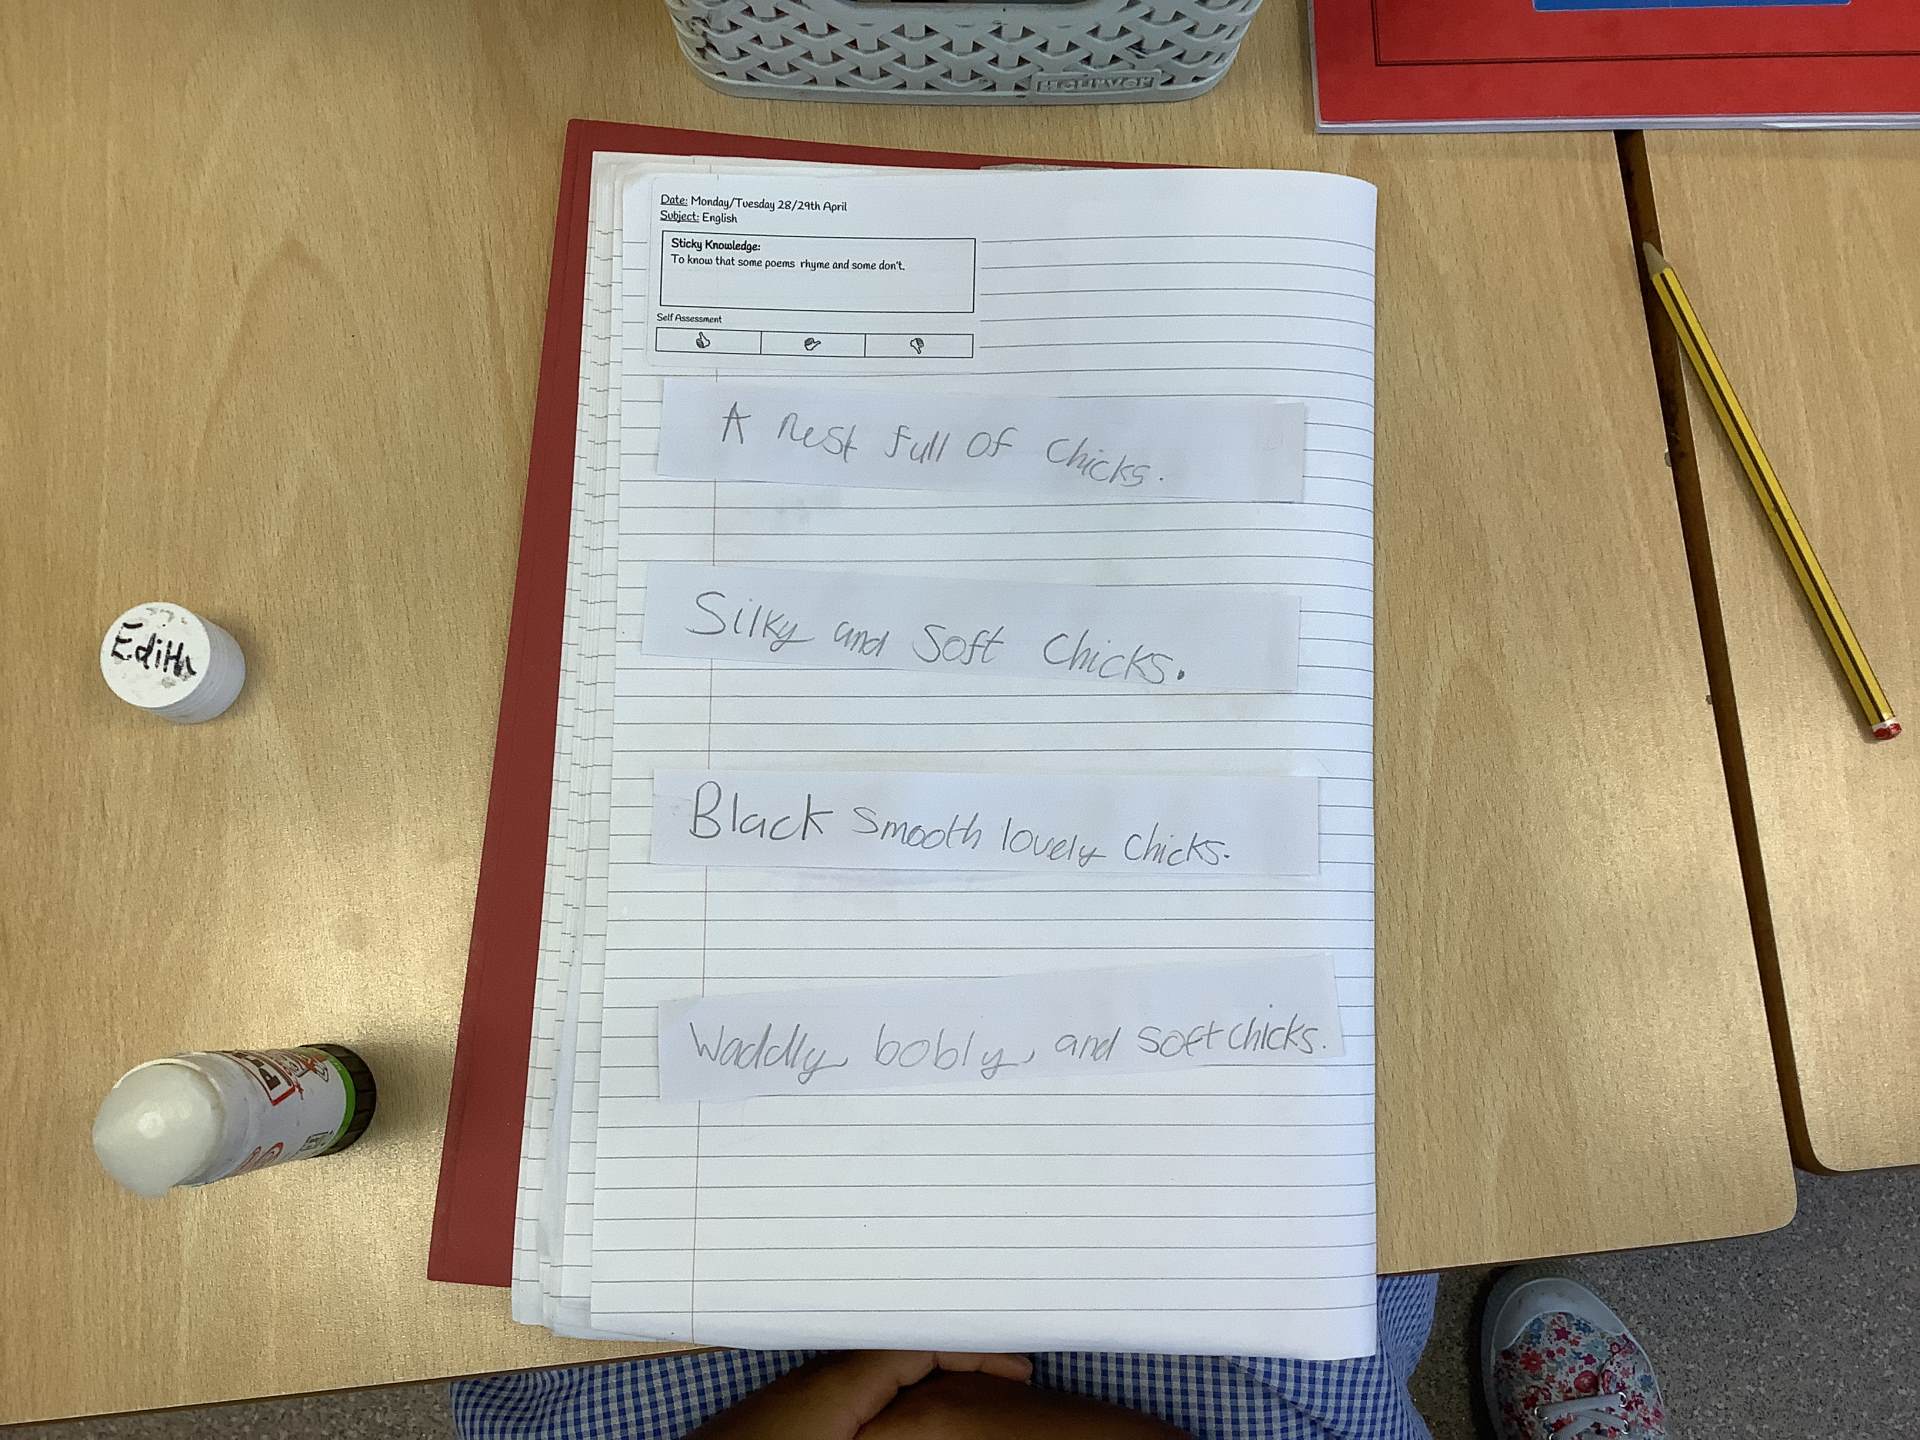 Date: Monday/Tuesday 28/29th April
Subject: English
Sticky Knowledge:
To know that some poems rhyme and some don't.
Self Assessment
A nest full of chicks.
Silky and soft chicks.
Black smooth lovely chicks.
Waddly, bobly, and soft chicks.
Edith